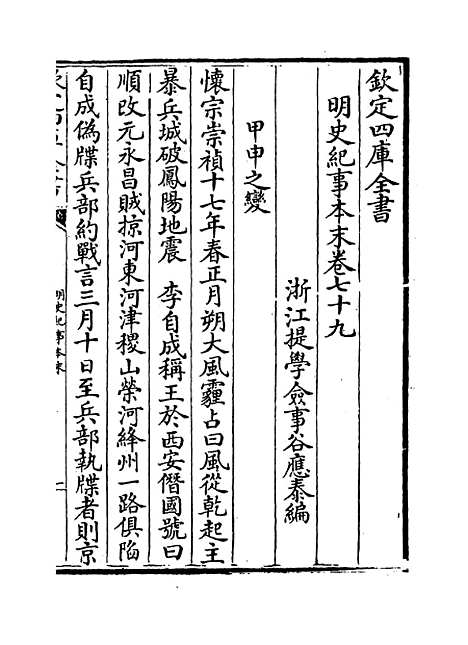 欽定四庫全書
明史紀事本末卷七十九
浙江提學僉事谷應泰編
甲申之變
懷宗崇禎十七年春正月朔大風霾占曰風從乾起主
暴兵城破鳳陽地震 李自成稱王於西安僭國號曰
順改元永昌賊掠河東河津稷山榮河絳州一路俱陷
自成偽牒兵部約戰言三月十日至兵部執牒者則京
明史紀事本末